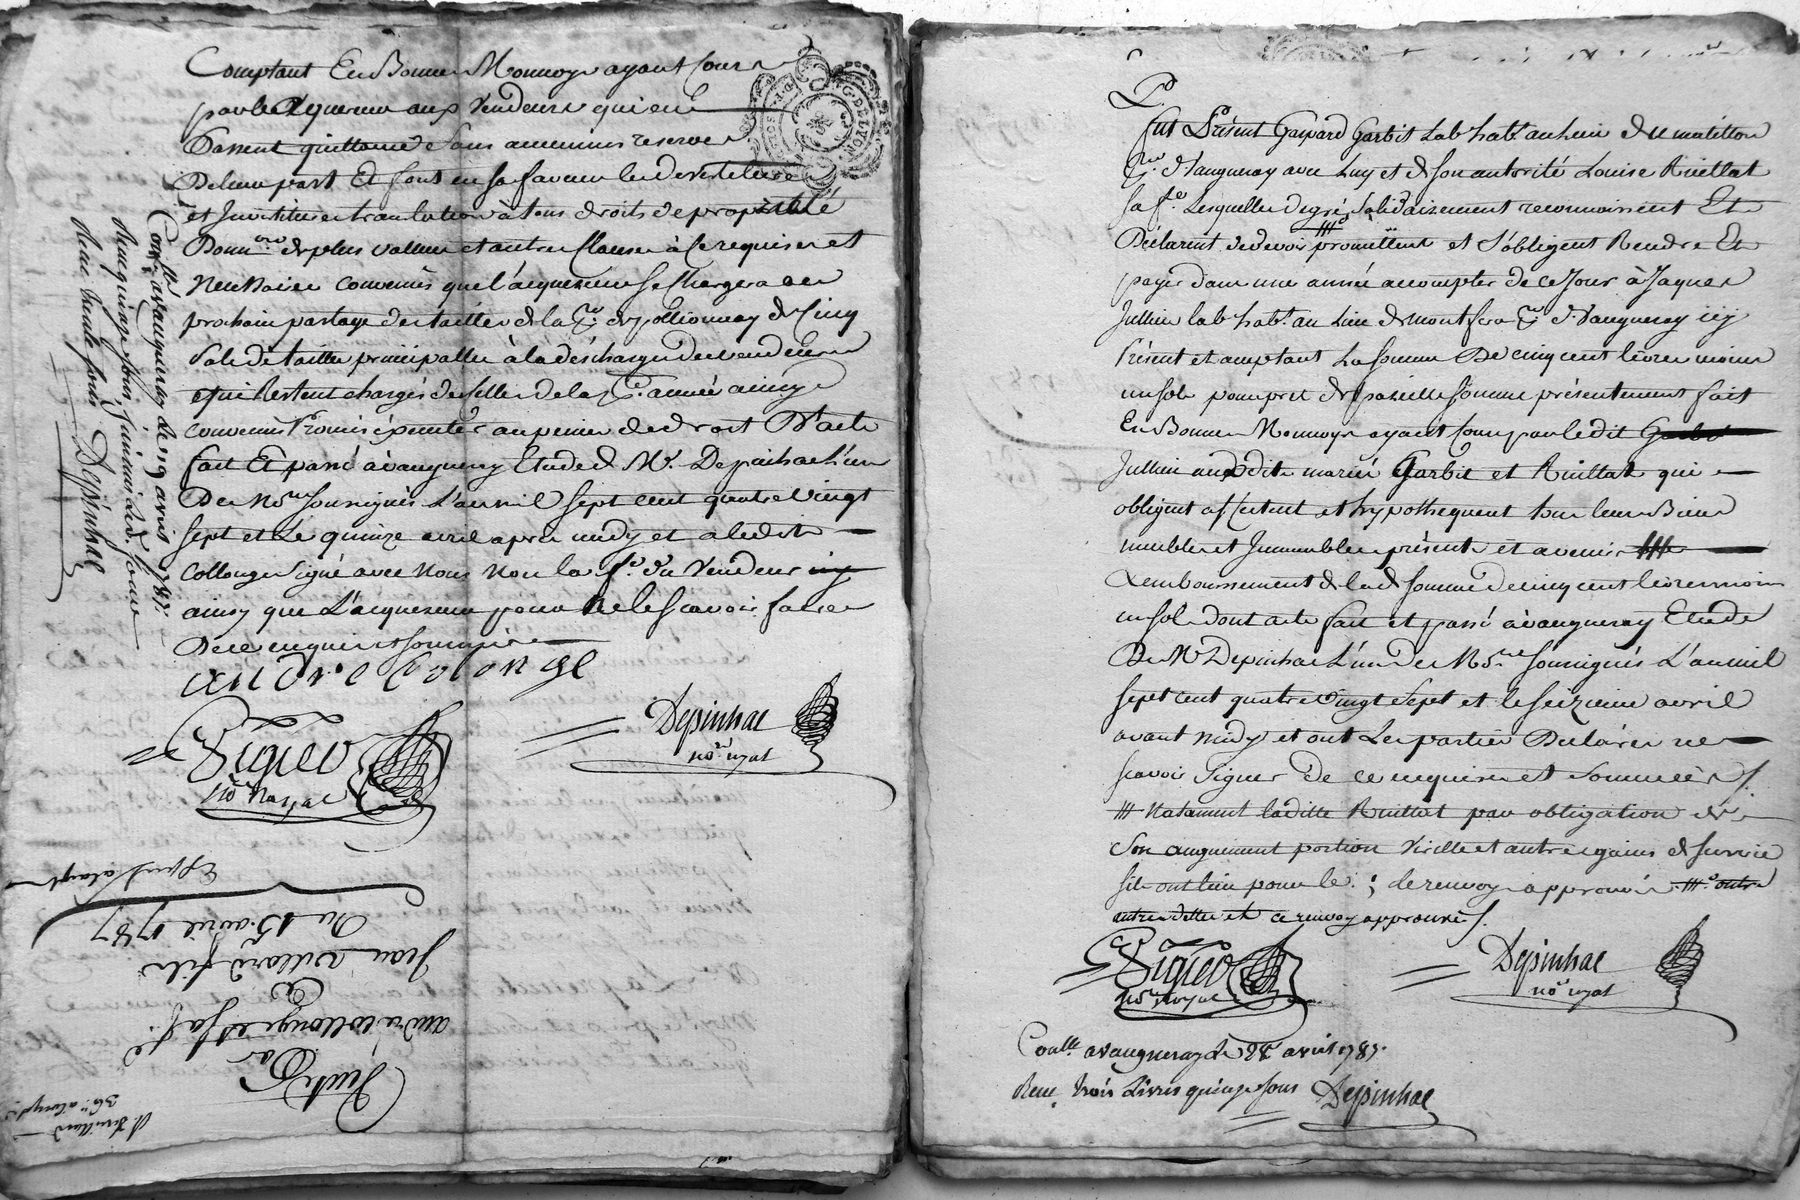 Comptant En Bonne Monnoye ayant Cours
par le acquereur aux Vendeurs qui en
Passent quittance Sans aucunnes reserves
De leur part Et font en sa faveur les devesteture
et Investiture translation de tous droits de proprieté
Dom.re de plus vallue et autre Clause à ce requise et
Necessaire convenus que l'acquereur se Chargera au
prochain partage des tailles de la p.sse de pollionnay de Cinq
Sols de taille principalle à la décharge des vendeurs
qui Restent chargés de celles de la p.te année ainsy
convenu Promis à peine de droit D'acte
fait Et passé à vaugneray Etude de M.e Depinhac L'un
Des No.res soussignés L'an mil sept cent quatre vingt
sept et Le quinze avril après midy et a ledit
Collonge signé avec Nous Non la f.e du Vendeur
ainsy que L'acquereur pour Ne le scavoir faire
De ce enquis et sommés
Depinhac
no.re royal
no.re Royal
Con.llé à vaugneray Le 29 avril 1787.
Reçu quinze sous
Depinhac
Vente
Par
andré Collonge et sa f.e
à
Jean Villard fils
Du 15 avril 1787
Fut Présent Gaspard Garbit Lab.r hab.t au lieu du matillon
P.sse de Vaugneray avec Luy et de son autorité Louise Ruillat
sa f.e Lesquelles de gré solidairement reconnoissent Et
Déclarent de devoir promettent et s'obligent Rendre Et
payer dans une année a compter de ce Jour à Jaques
Jullien lab.r hab.t au Lieu de montferra p.sse de Vaugneray icy
Présent et acceptant La somme De cinq cent livres moins
un sol pour pret de pareille somme présentement fait
En Bonne Monnoye ayant Cours par ledit
Jullien auxdits mariés Garbit et Ruillat qui
obligent affectent et hypothequent tous leurs Biens
meubles et Immeubles présents et avenir
Remboursement de lad. somme de cinq cent livres moins
un sol dont acte fait et passé à vaugneray Etude
De M.e Depinhac L'un Des No.res soussignés L'an mil
sept cent quatre vingt Sept et le seizieme avril
avant midy et ont Les parties Déclarés ne
scavoir Signer de ce enquises et Sommées /.
Notament ladite Ruillat par obligation de
son augment portion Virille et autres gains de survie
sil ont lieu pour le ; le renvoy approuvé outre
autres dettes et ce renvoy approuvé /.
Depinhac
no.re royal
no.re Royal
Con.llé à vaugneray le 28 avril 1787.
Reçu trois Livres quinze sous Depinhac